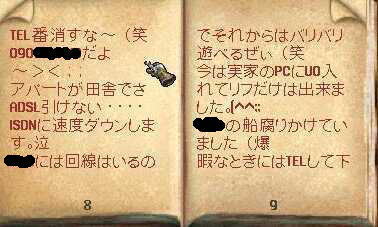 TEL番消すな～（笑
090だよ
～＞＜；；
アパートが田舎でさ
ADSL引けない・・・・
ISDNに速度ダウンしま
す。泣
には回線はいるの
8
でそれからはバリバリ
遊べるぜぃ（笑
今は実家のPCにUO入
れてリフだけは出来ま
した。(^^;;
の船腐りかけてい
ました（爆
暇なときにはTELして下
9